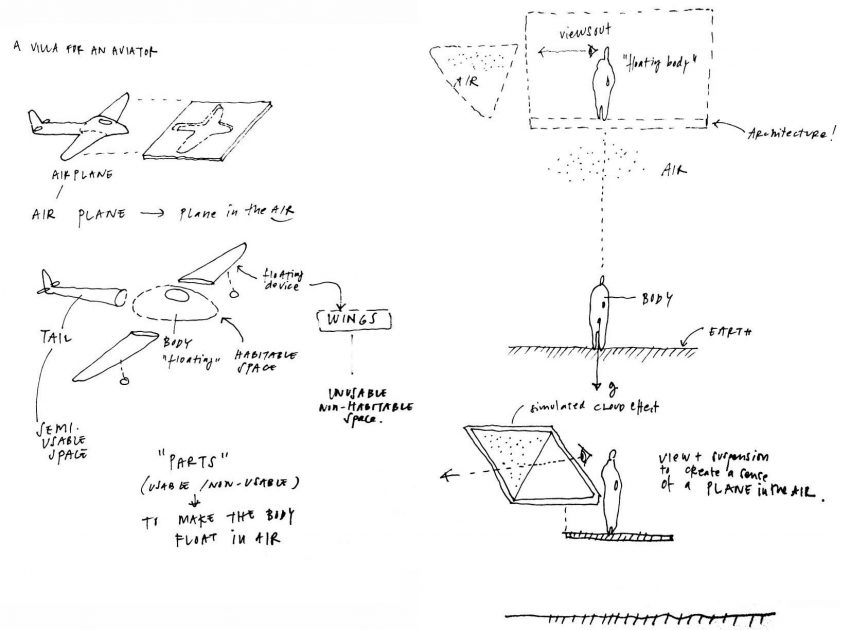 A VILLA FOR AN AVIATOR
AIRPLANE
AIR PLANE → Plane in the AIR
floating
device
WINGS
TAIL
BODY
"floating"
HABITABLE
SPACE
UNUSABLE
NON-HABITABLE
Space.
SEMI-
USABLE
SPACE
"PARTS"
(USABLE / NON-USABLE)
TO MAKE THE BODY
FLOAT IN AIR
views out
AIR
"floating body"
Architecture!
AIR
BODY
EARTH
g
simulated CLOUD effect
VIEW + suspension
to create a sense
of a PLANE in the AIR.